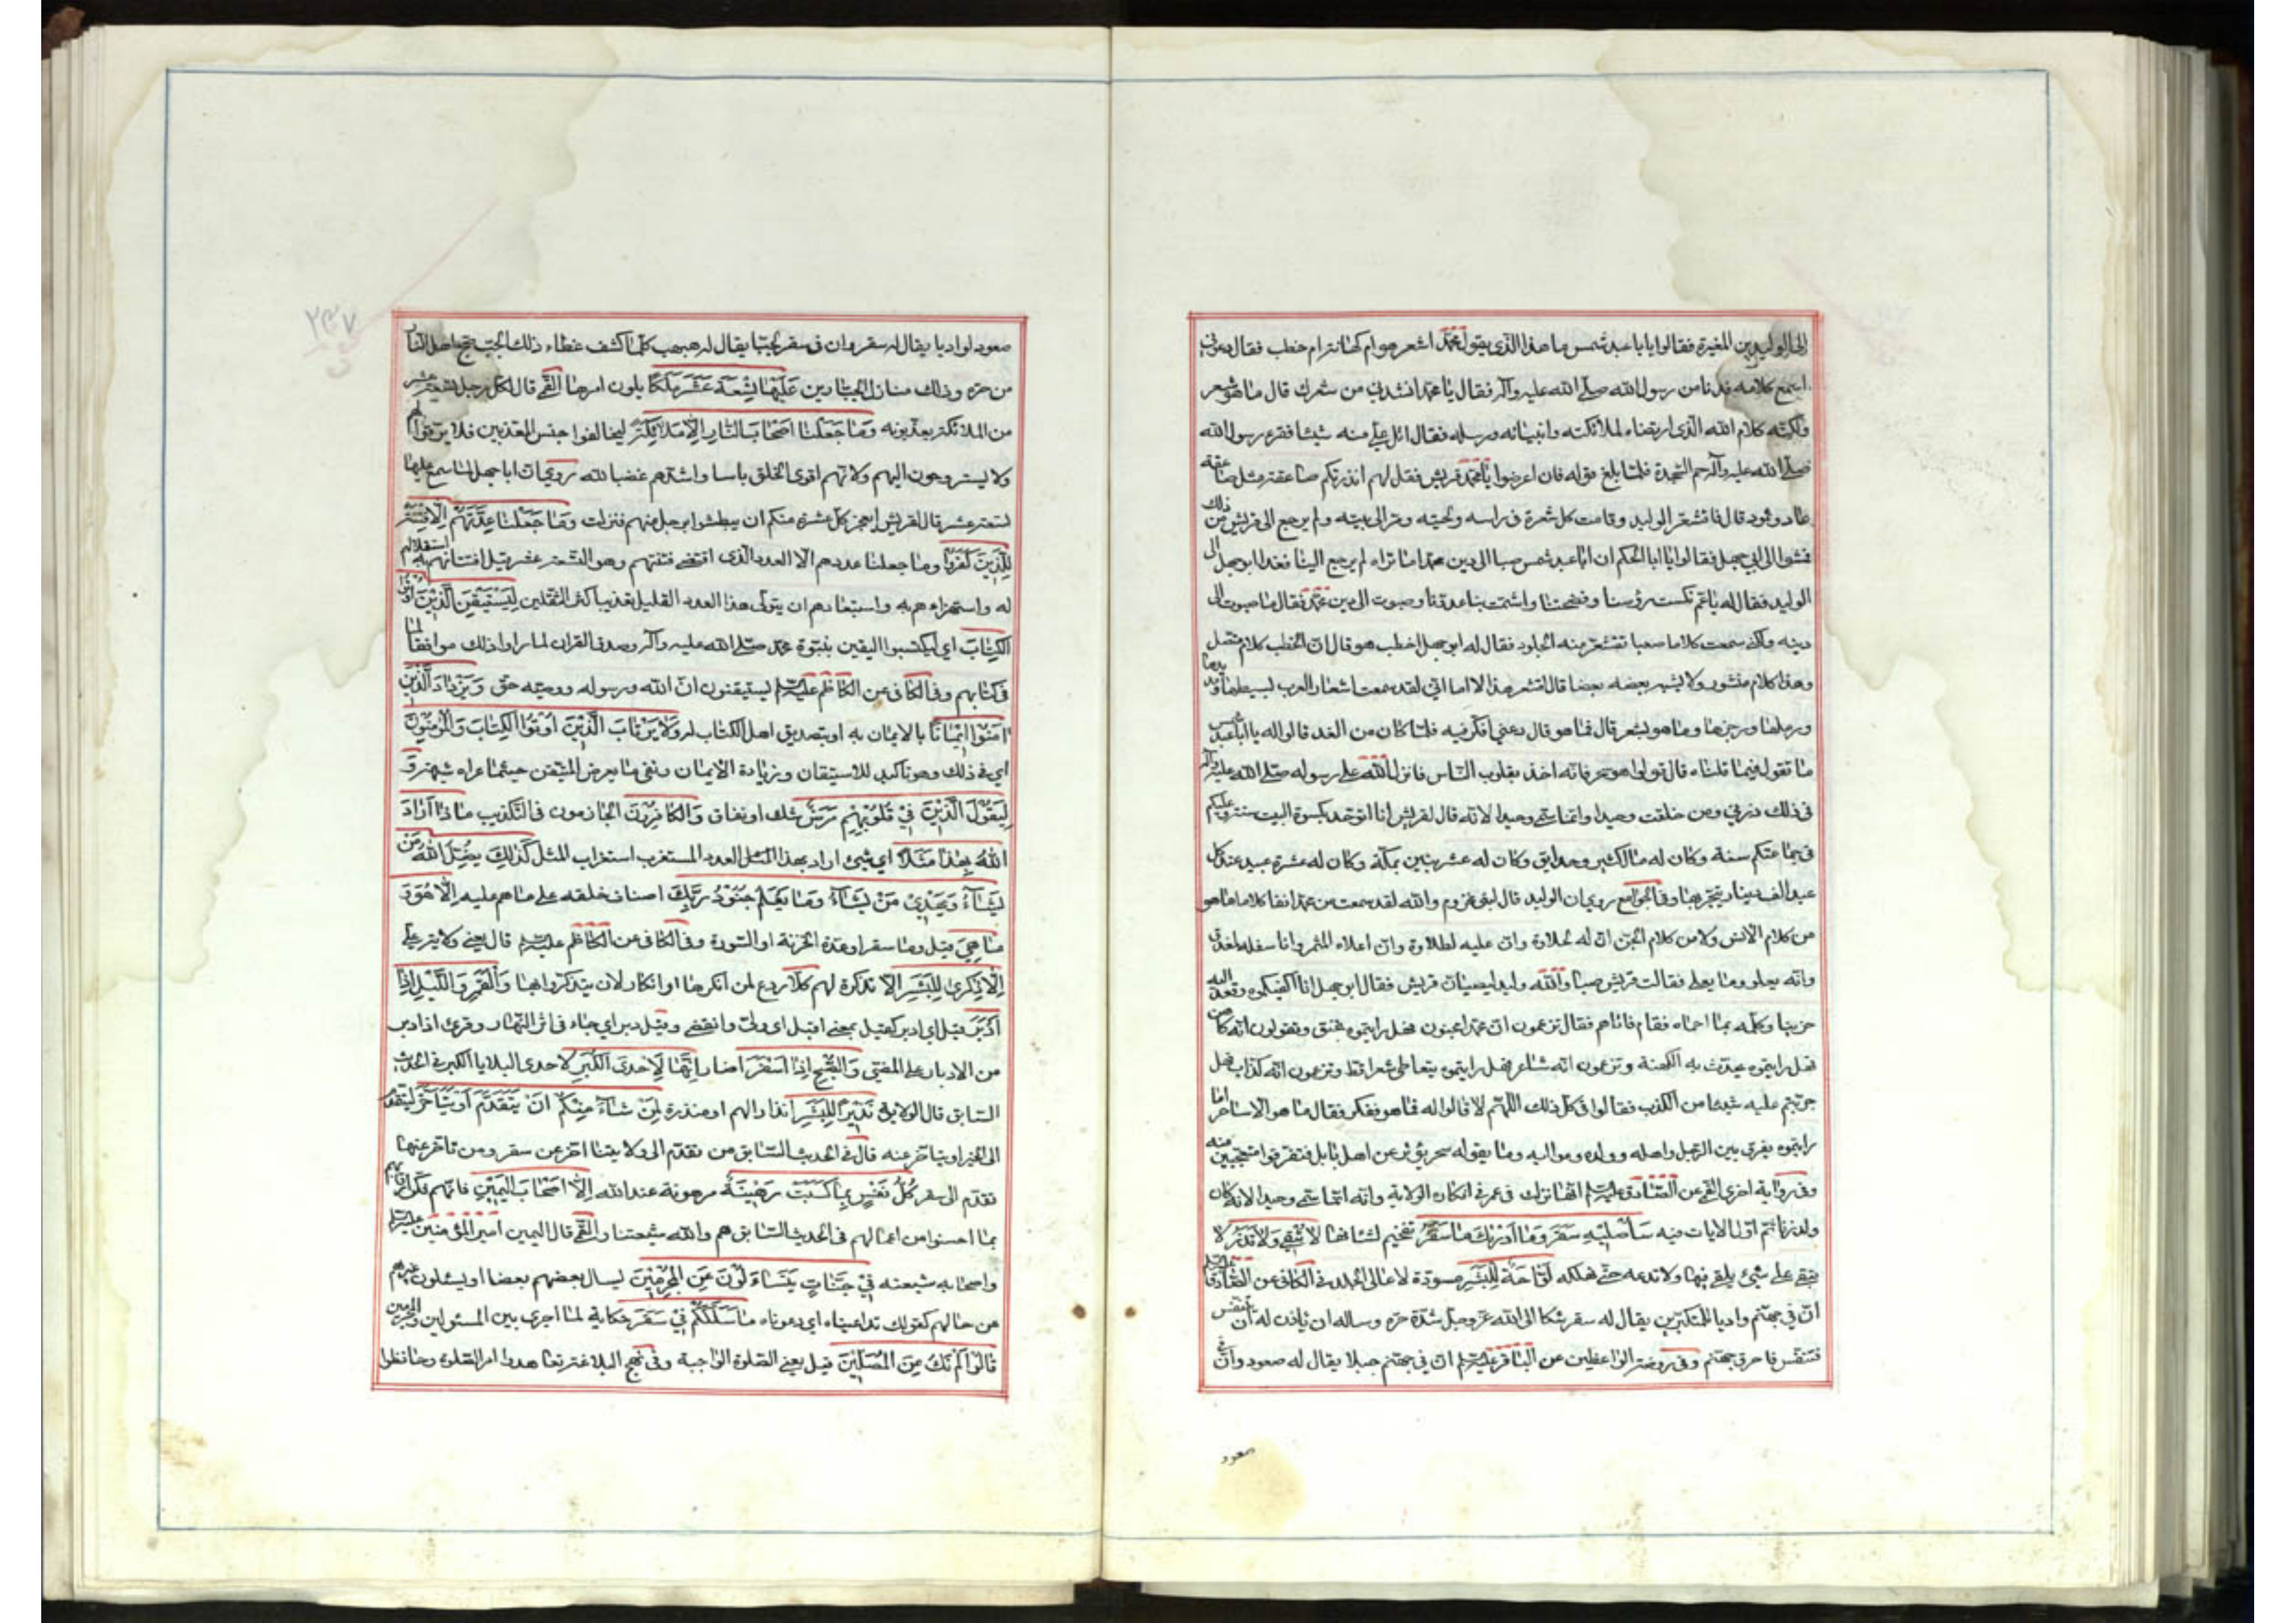 الى الوليد بن المغيرة فقالوا يابا عبد شمس ما هذا الذى يقول محمّد اشعر هو ام كهانة ام خطب فقال دعونى
اسمع كلامه فدنا من رسول الله صلّى الله عليه وآله فقال يا محمّد انشدنى من شعرك قال ما هو شعر
ولكنّه كلام الله الذى ارتضاه لملائكته وانبيائه ورسله فقال اتل علىّ منه شيئا فقرء رسول الله
صلّى الله عليه وآله حم السّجدة فلمّا بلغ قوله فان اعرضوا يا محمّد قريش فقل لهم انذرتكم صاعقة مثل صاعقة
عاد وثمود قال فاقشعرّ الوليد وقامت كل شعرة فى راسه ولحيته ومرّ الى بيته ولم يرجع الى قريش من ذلك
فمشوا الى ابى جهل فقالوا يا ابا الحكم ان ابا عبد شمس صبا الى دين محمّد اما تراه لم يرجع الينا فغدا ابو جهل الى
الوليد فقال له يا عم نكست رؤسنا وفضحتنا واشمت بنا عدوّنا وصبوت الى دين محمّد فقال ما صبوت الى
دينه ولكنّى سمعت كلاما صعبا تقشعرّ منه الجلود فقال له ابو جهل اخطب هو قال انّ الخطب كلام متّصل
وهذا كلام منثور ولا يشبه بعضه بعضا قال افشعر هذا لا اما انّى لقد سمعت اشعار العرب بسيطها ومديدها
ورملها ورجزها وما هو بشعر قال فما هو قال دعنى افكّر فيه فلمّا كان من الغد قالوا له يا ابا عبد شمس
ما تقول فيما قلناه قال قولوا هو سحر فانّه اخذ بقلوب النّاس فانزل الله على رسوله صلّى الله عليه وآله
فى ذلك ذرنى ومن خلقت وحيدا وانّما سمّى وحيدا لانّه قال لقريش انا اتوحّد بكسوة البيت سنة وعليكم
فى جماعتكم سنة وكان له مال كثير وحدايق وكان له عشر بنين بمكّة وكان له عشرة عبيد عند كل
عبد الف دينار يتّجر بها وفى الجوامع روى ان الوليد قال لبنى مخزوم والله لقد سمعت من محمّد انفا كلاما ما هو
من كلام الانس ولا من كلام الجن انّ له لحلاوة وانّ عليه لطلاوة وانّ اعلاه لمثمر وانّ اسفله لمغدق
وانّه يعلو وما يعلى فقالت قريش صبا والله وليد ليصبانّ قريش فقال ابو جهل انا اكفيكموه وقعد اليه
حزينا وكلّمه بما احماه فقام فاتاهم فقال تزعمون انّ محمّدا مجنون فهل رايتموه يخنق وتقولون انّه كاهن
فهل رايتموه يحدّث به الكهنة وتزعمون انّه شاعر فهل رايتموه يتعاطى شعرا قط وتزعمون انّه كذّاب فهل
جرّبتم عليه شيئا من الكذب فقالوا فى كل ذلك اللّهم لا قالوا له فما هو ففكّر فقال ما هو الا ساحر اما
رايتموه يفرق بين الرّجل واهله وولده ومواليه وما يقوله سحر يؤثر عن اهل بابل فتفرقوا متعجّبين منه
وفى رواية اخرى القمى عن الصّادق عليه السلم انّها نزلت فى عمر فى انكاره الولاية وانّه انّما سمّى وحيدا لانه كان
ولد زنا ثمّ اوّل الايات فيه سَاُصْلِيهِ سَقَرَ وَمَا اَدْرٰيكَ مَا سَقَرُ تفخيم لشانها لا تُبْقِى وَلا تَذَرُ لا
تبقى على شىء يلقى فيها ولا تدعه حتّى تهلكه لَوّاحَةٌ لِلْبَشَرِ مسوّدة لاعالى الجلد فى الكافى عن الصّادق عليه السلم
انّ فى جهنّم واديا للمتكبّرين يقال له سقر شكا الى الله عزّ وجلّ شدّة حرّه وساله ان ياذن له ان يتنفس
فتنفّس فاحرق جهنّم وفى روضة الواعظين عن الباقر عليه السلم انّ فى جهنّم جبلا يقال له صعود وانّ فى
صعود
٢٣٧
صعود لواديا يقال له سقر وان فى سقر لجبّا يقال له هبهب كلّما كشف غطاء ذلك الجبّ ضجّ اهل النّار
من حرّه وذلك منازل الجبّارين عَلَيْهَا تِسْعَةَ عَشَرَ ملكا يلون امرها القمى قال لكل رجل تسعة عشر
من الملائكة يعذّبونه وَمَا جَعَلْنَا اَصْحَابَ النَّارِ اِلّا مَلائِكَةً ليخالفوا جنس المعذّبين فلا يرقّوا لهم
ولا يستروحون اليهم ولانّهم اقوى الخلق باسا واشدّهم غضبا لله روى انّ ابا جهل لمّا سمع عليها
تسعة عشر قال لقريش ايعجز كل عشرة منكم ان يبطشوا برجل منهم فنزلت وَمَا جَعَلْنَا عِدَّتَهُمْ اِلّا فِتْنَةً
لِلَّذِينَ كَفَرُوا وما جعلنا عددهم الّا العدد الذى اقتضى فتنتهم وهو التّسعة عشر قيل افتتانهم به استقلالهم
له واستهزاءهم به واستبعادهم ان يتولى هذا العدد القليل تعذيب اكثر الثّقلين لِيَسْتَيْقِنَ الَّذِينَ اُوتُوا
الْكِتَابَ اى ليكتسبوا اليقين بنبوّة محمّد صلّى الله عليه وآله وصدق القران لما راوا ذلك موافقا لما
فى كتابهم وفى الكافى عن الكاظم عليه السلم ليستيقنون انّ الله ورسوله ووصيّه حق وَيَزْدَادَ الَّذِينَ
اٰمَنُوا اِيمَانًا بالايمان به او بتصديق اهل الكتاب له وَلا يَرْتَابَ الَّذِينَ اُوتُوا الْكِتَابَ وَالْمُؤْمِنُونَ
اى فى ذلك وهو تاكيد للاستيقان وزيادة الايمان ونفى ما يعرض المتيقن حيثما عراه شبهة وَ
لِيَقُولَ الَّذِينَ فِى قُلُوبِهِمْ مَرَضٌ شك او نفاق وَالْكَافِرُونَ الجازمون فى التّكذيب مَاذَا اَرَادَ
اللهُ بِهٰذَا مَثَلًا اى شىء اراد بهذا المثل العدد المستغرب استغراب المثل كَذٰلِكَ يُضِلُّ اللهُ مَنْ
يَشَاءُ وَيَهْدِى مَنْ يَشَاءُ وَمَا يَعْلَمُ جُنُودَ رَبِّكَ اصناف خلقه على ما هم عليه اِلّا هُوَ وَ
مَا هِىَ قيل وما سقر او عدّة الخزنة او السّورة وفى الكافى عن الكاظم عليه السلم قال يعنى ولاية على
اِلّا ذِكْرٰى لِلْبَشَرِ الّا تذكرة لهم كَلّا ردع لمن انكرها او انكار لان يتذكّروا بها وَالْقَمَرِ وَاللَّيْلِ اِذْ
اَدْبَرَ قيل اى ادبر كقبل بمعنى اقبل اى ولّى وانقضى وقيل دبر اى جاء فى اثر النّهار وقرئ اذا دبر
من الادبار على المضى وَالصُّبْحِ اِذَا اَسْفَرَ اضاء اِنَّهَا لَاِحْدَى الْكُبَرِ لاحدى البلايا الكبر فى الحديث
السّابق قال الولاية نَذِيرًا لِلْبَشَرِ انذارا لهم او منذرة لِمَنْ شَاءَ مِنْكُمْ اَنْ يَتَقَدَّمَ اَوْ يَتَاَخَّرَ ليتقدم
الى الخير او يتاخّر عنه قال فى الحديث السّابق من تقدّم الى ولايتنا اخّر عن سقر ومن تاخّر عنها
تقدّم الى سقر كُلُّ نَفْسٍ بِمَا كَسَبَتْ رَهِينَةٌ مرهونة عند الله اِلّا اَصْحَابَ الْيَمِينِ فانّهم فكّوا رقابهم
بما احسنوا من اعمالهم فى الحديث السّابق هم والله شيعتنا والقمى قال اليمين امير المؤمنين عليه السلم
واصحابه شيعته فِى جَنَّاتٍ يَتَسَاءَلُونَ عَنِ الْمُجْرِمِينَ يسال بعضهم بعضا او يسئلون غيرهم
عن حالهم كقولك تداعيناه اى دعوناه مَا سَلَكَكُمْ فِى سَقَرَ حكاية لما اجرى بين المسئولين والمجرمين
قَالُوا لَمْ نَكُ مِنَ الْمُصَلِّينَ قيل يعنى الصّلوة الواجبة وفى نهج البلاغة تعاهدوا امر الصّلوة وحافظوا